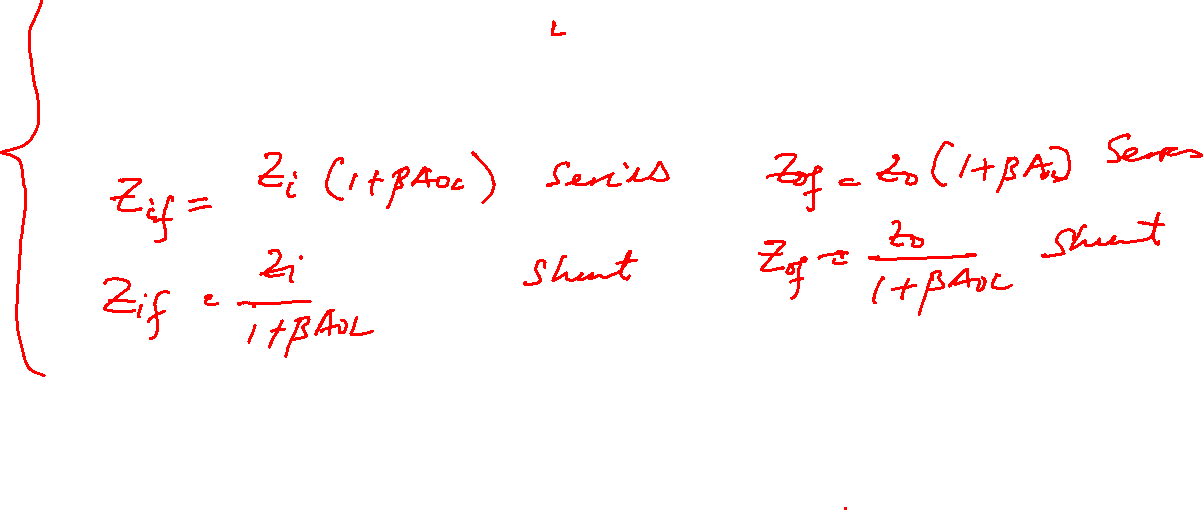 L
Zif = Zi (1+βAOL) Series Zof = Zo (1+βAOL) Series
Zif = Zi / (1+βAOL) Shunt Zof = Zo / (1+βAOL) Shunt